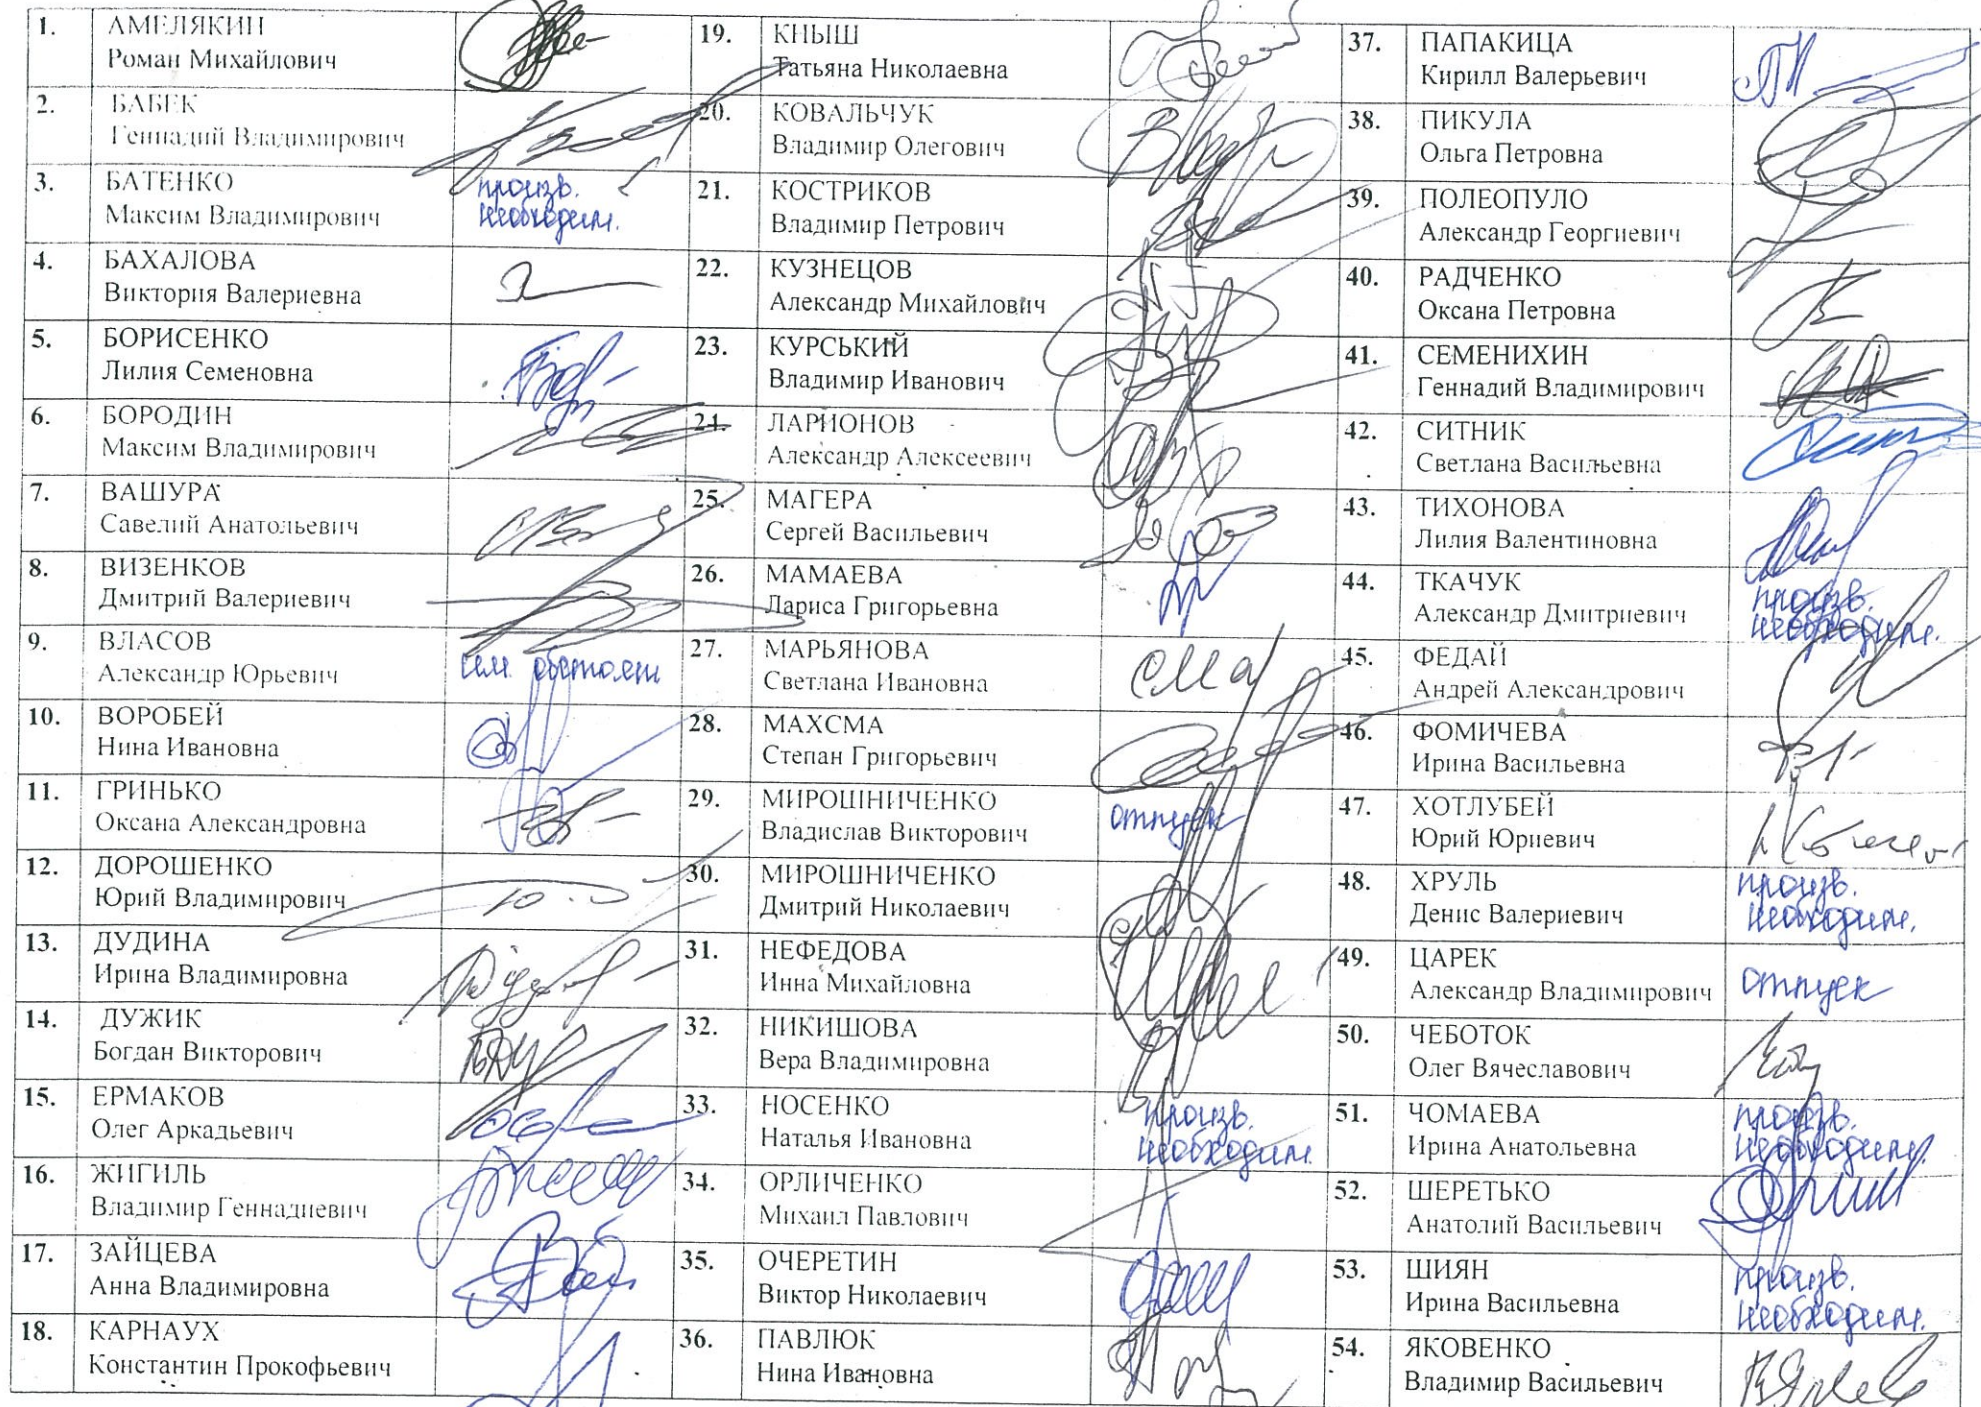 1. АМЕЛЯКИН
Роман Михайлович
2. БАБЕК
Геннадий Владимирович
3. БАТЕНКО
Максим Владимирович
произв.
необходим.
4. БАХАЛОВА
Виктория Валериевна
5. БОРИСЕНКО
Лилия Семеновна
6. БОРОДИН
Максим Владимирович
7. ВАШУРА
Савелий Анатольевич
8. ВИЗЕНКОВ
Дмитрий Валериевич
9. ВЛАСОВ
Александр Юрьевич
сем. обстоят
10. ВОРОБЕЙ
Нина Ивановна
11. ГРИНЬКО
Оксана Александровна
12. ДОРОШЕНКО
Юрий Владимирович
13. ДУДИНА
Ирина Владимировна
14. ДУЖИК
Богдан Викторович
15. ЕРМАКОВ
Олег Аркадьевич
16. ЖИГИЛЬ
Владимир Геннадиевич
17. ЗАЙЦЕВА
Анна Владимировна
18. КАРНАУХ
Константин Прокофьевич
19. КНЫШ
Татьяна Николаевна
20. КОВАЛЬЧУК
Владимир Олегович
21. КОСТРИКОВ
Владимир Петрович
22. КУЗНЕЦОВ
Александр Михайлович
23. КУРСЬКИЙ
Владимир Иванович
24. ЛАРИОНОВ
Александр Алексеевич
25. МАГЕРА
Сергей Васильевич
26. МАМАЕВА
Лариса Григорьевна
27. МАРЬЯНОВА
Светлана Ивановна
28. МАХСМА
Степан Григорьевич
29. МИРОШНИЧЕНКО
Владислав Викторович
отпуск
30. МИРОШНИЧЕНКО
Дмитрий Николаевич
31. НЕФЕДОВА
Инна Михайловна
32. НИКИШОВА
Вера Владимировна
33. НОСЕНКО
Наталья Ивановна
произв.
необходим.
34. ОРЛИЧЕНКО
Михаил Павлович
35. ОЧЕРЕТИН
Виктор Николаевич
36. ПАВЛЮК
Нина Ивановна
37. ПАПАКИЦА
Кирилл Валерьевич
38. ПИКУЛА
Ольга Петровна
39. ПОЛЕОПУЛО
Александр Георгиевич
40. РАДЧЕНКО
Оксана Петровна
41. СЕМЕНИХИН
Геннадий Владимирович
42. СИТНИК
Светлана Васильевна
43. ТИХОНОВА
Лилия Валентиновна
44. ТКАЧУК
Александр Дмитриевич
произв.
необходим.
45. ФЕДАЙ
Андрей Александрович
46. ФОМИЧЕВА
Ирина Васильевна
47. ХОТЛУБЕЙ
Юрий Юриевич
48. ХРУЛЬ
Денис Валериевич
произв.
необходим.
49. ЦАРЕК
Александр Владимирович
отпуск
50. ЧЕБОТОК
Олег Вячеславович
51. ЧОМАЕВА
Ирина Анатольевна
произв.
необходим.
52. ШЕРЕТЬКО
Анатолий Васильевич
53. ШИЯН
Ирина Васильевна
произв.
необходим.
54. ЯКОВЕНКО
Владимир Васильевич